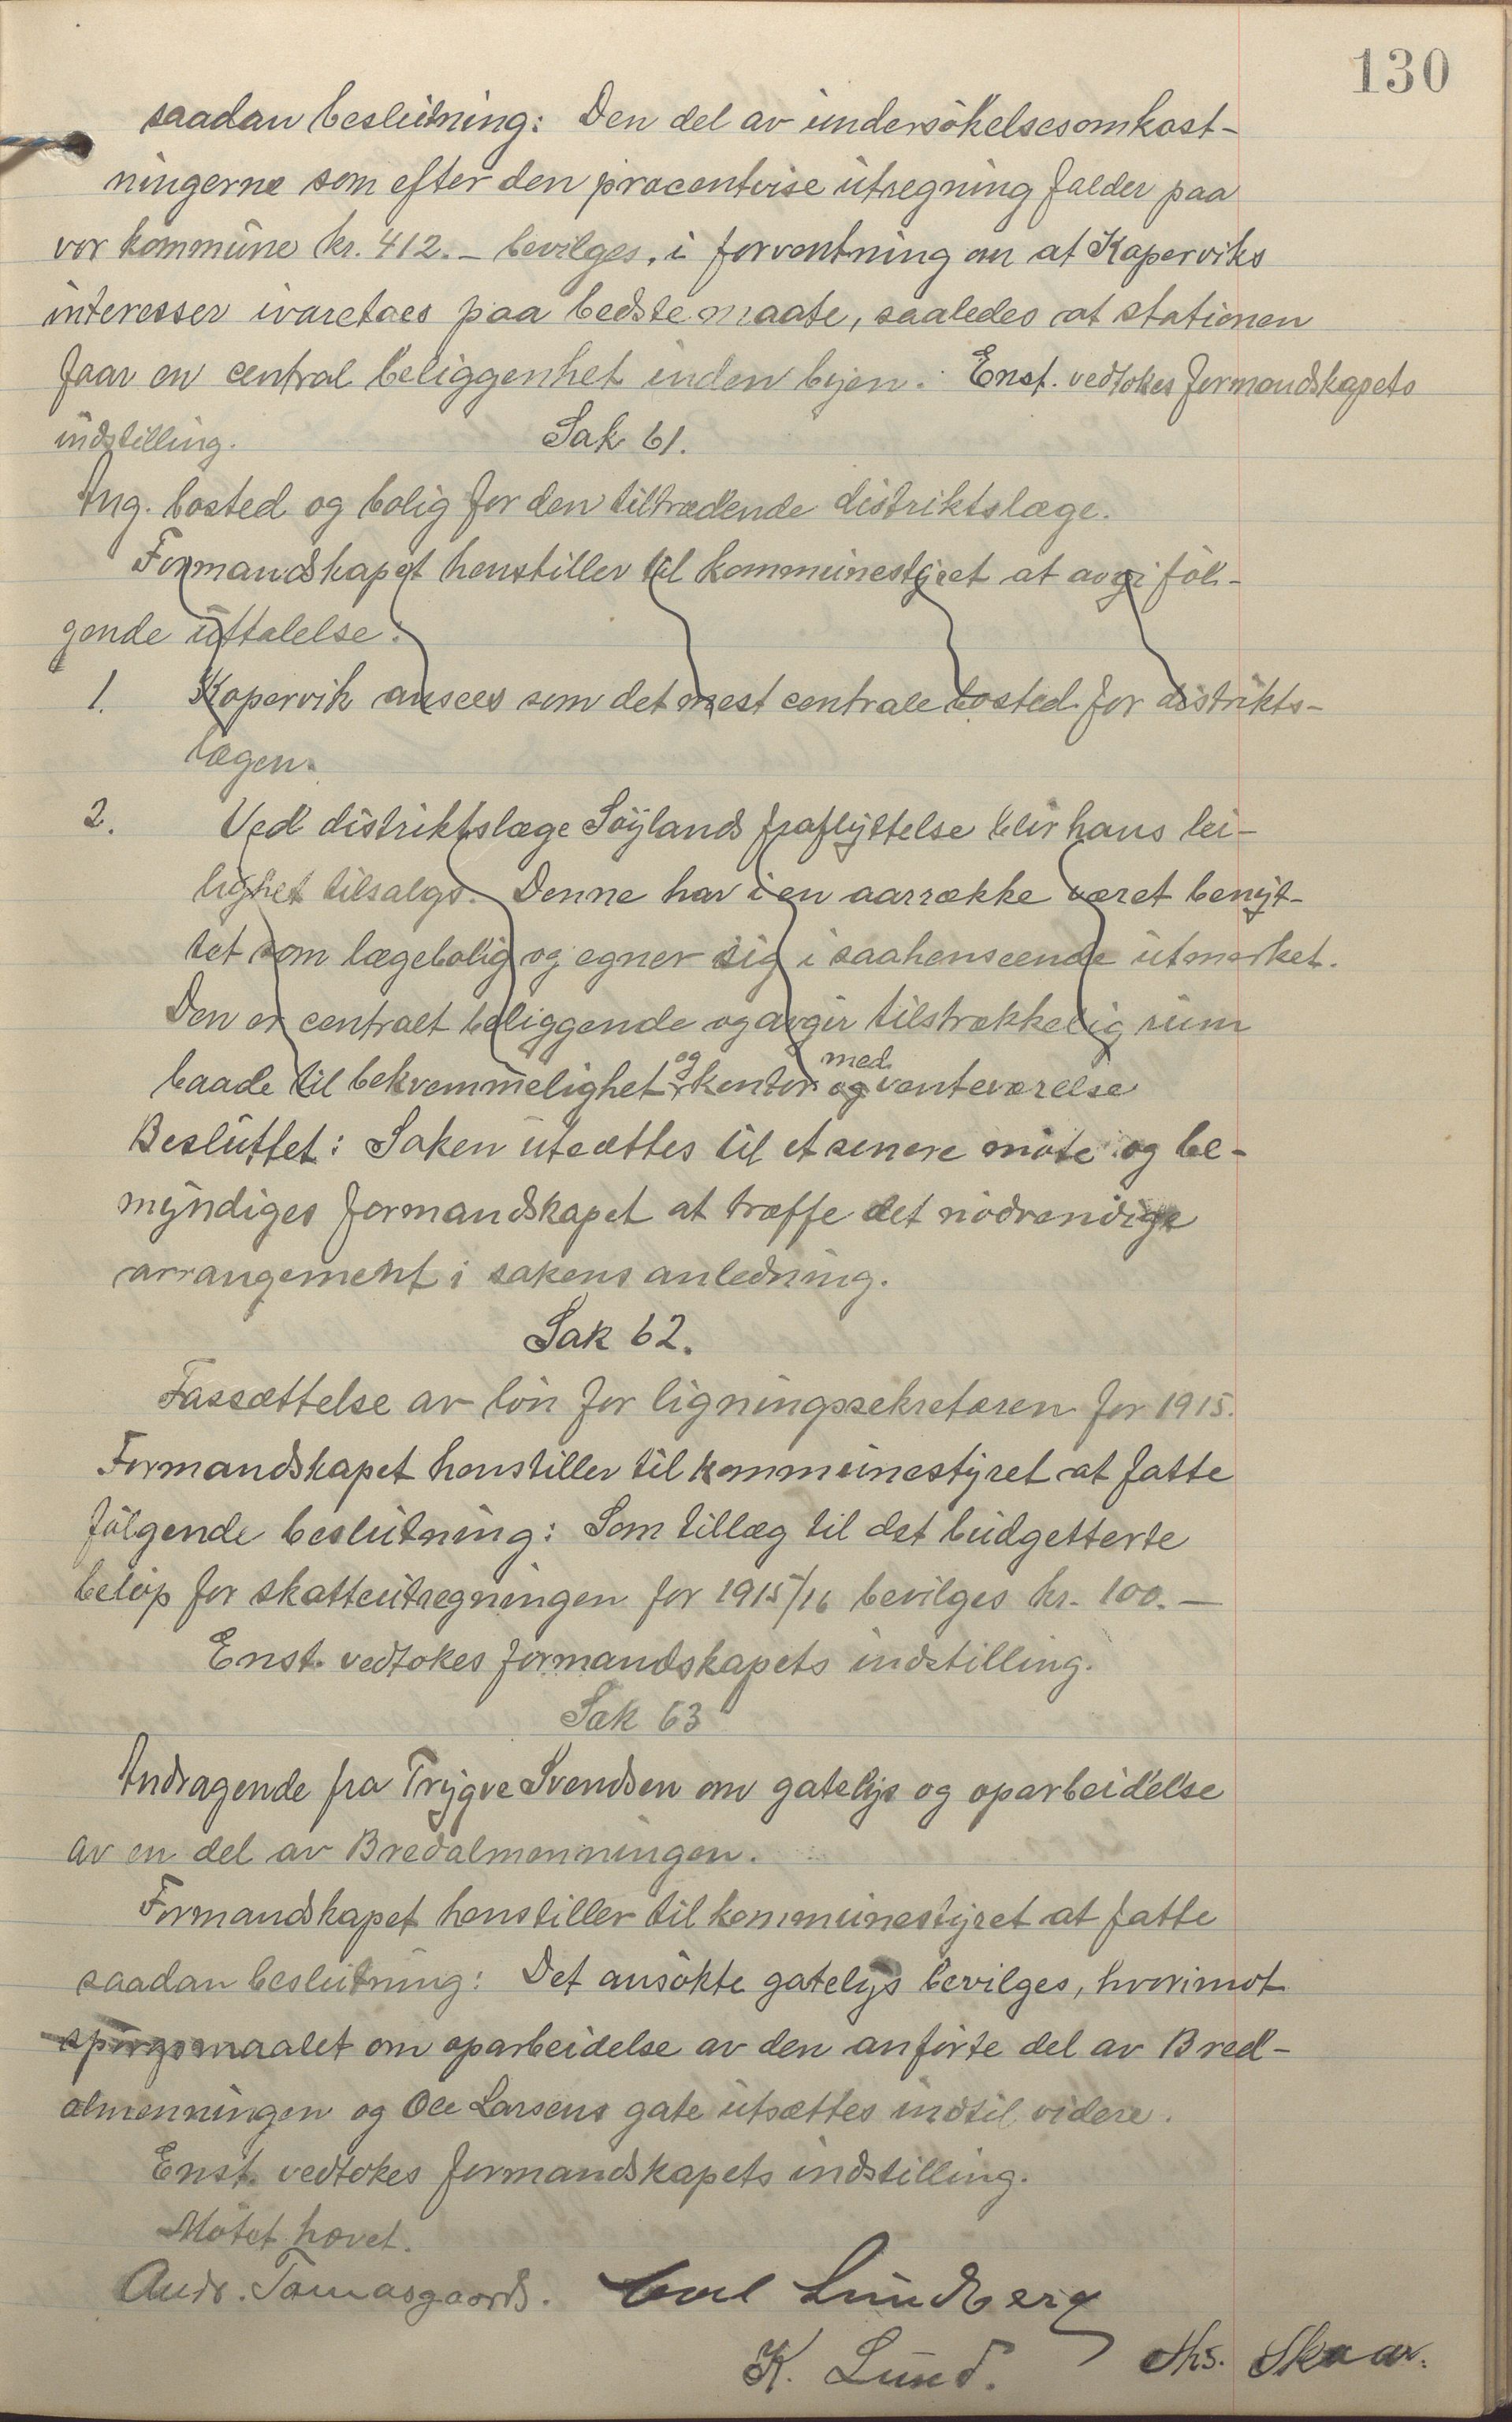 130
saadan beslutning: Den del av undersøkelsesomkost-
ningerne som efter den procentvise utregning falder paa
vor kommune kr. 412.- bevilges, i forventning om at Koperviks
interesser ivaretaes paa bedste maate, saaledes at stationen
faar en central beliggenhet inden byen. Enst. vedtokes formandskapets
indstilling. Sak 61.
Ang. bosted og bolig for den tiltrædende distriktslæge.
Formandskapet henstiller til kommunestyret at avgi føl-
gende uttalelse:
1. Kopervik ansees som det mest centrale bosted for distrikts-
lægen.
2. Ved distriktslæge Søylands fraflyttelse blir hans lei-
lighet tilsalgs. Denne har i en aarrække været benyt-
tet som lægebolig og egner sig i saahenseende utmerket.
Den er centralt beliggende og avgir tilstrækkelig rum
baade til bekvemmelighet og kontor med venteværelse
Besluttet: Saken utsættes til et senere møte og be-
myndiges formandskapet at træffe det nødvendige
arrangement i sakens anledning.
Sak 62.
Fassættelse av løn for ligningssekretæren for 1915.
Formandskapet henstiller til kommunestyret at fatte
følgende beslutning: Som tillæg til det budgetterte
beløp for skatteutregningen for 1915/16 bevilges kr. 100.-
Enst. vedtokes formandskapets indstilling.
Sak 63
Andragende fra Trygve Svendsen om gatelys og oparbeidelse
av en del av Bredalmenningen.
Formandskapet henstiller til kommunestyret at fatte
saadan beslutning: Det ansøkte gatelys bevilges, hvorimot
spørgsmaalet om oparbeidelse av den anførte del av Bred-
almenningen og Ole Larsens gate utsættes indtil videre.
Enst. vedtokes formandskapets indstilling.
Møtet hævet.
Andr. Tomasgaard. Carl Lundberg
K. Lund. Ths. Skaar.